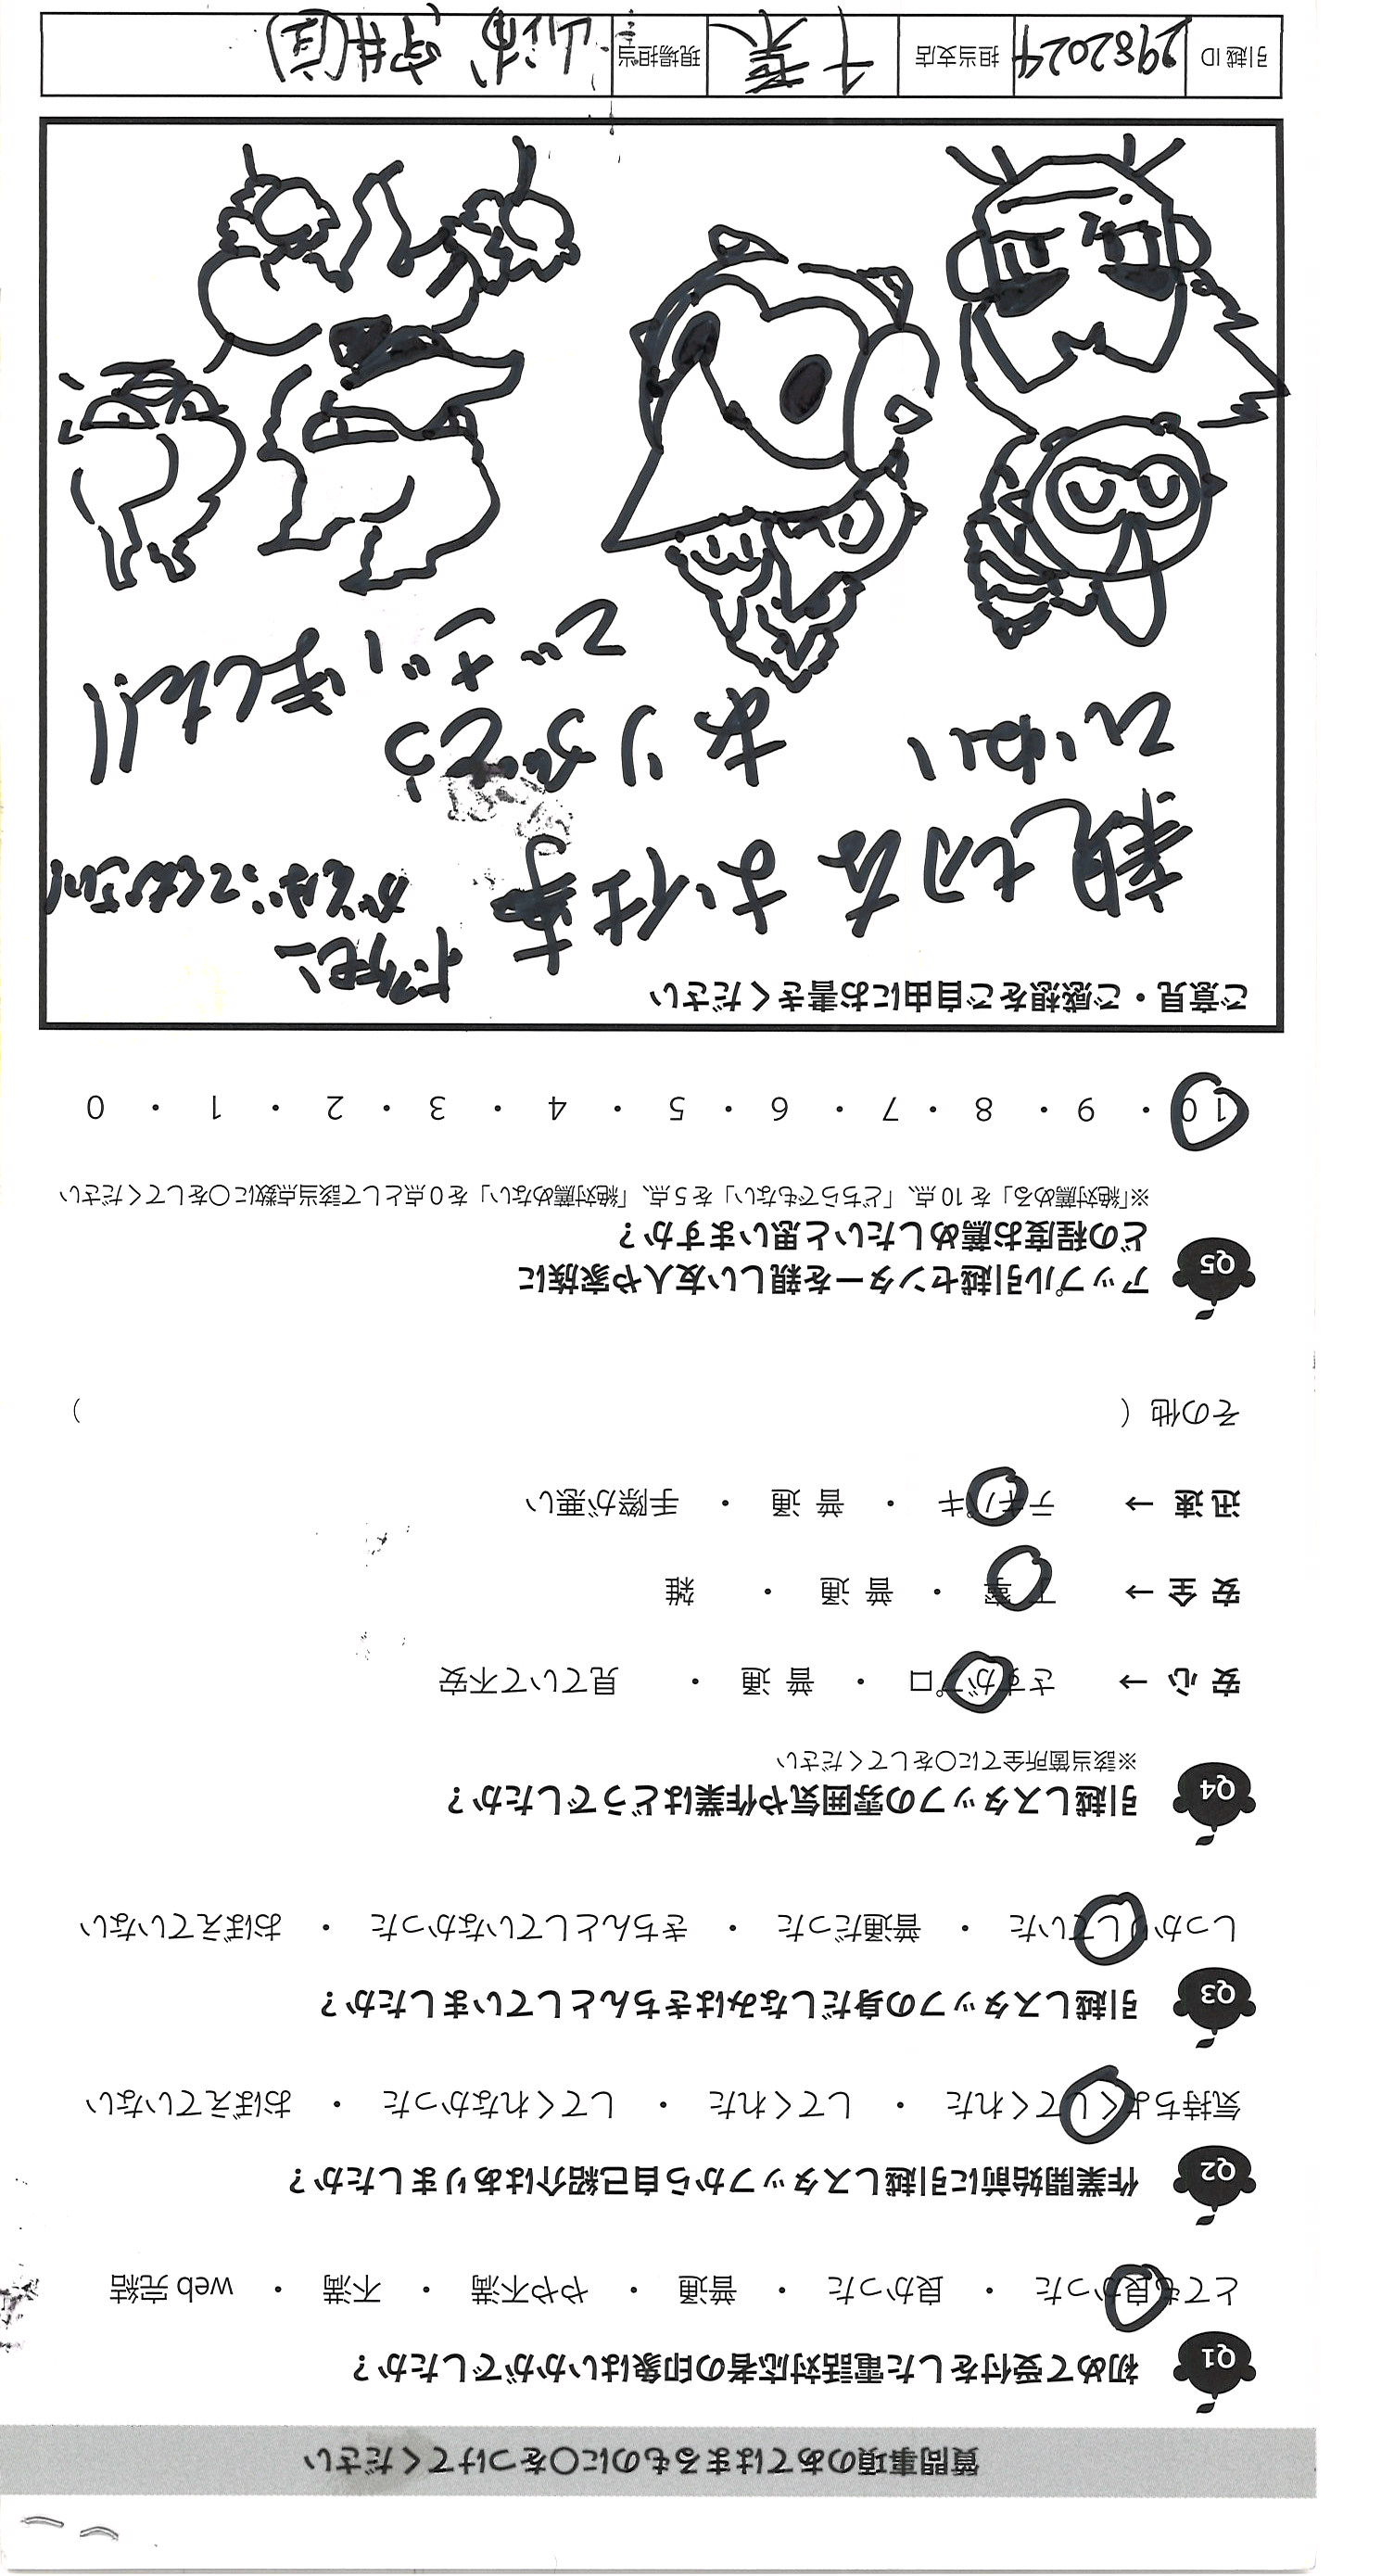 質問事項のあてはまるものに○をつけてください
Q1 初めて受付をした電話対応者の印象はいかがでしたか？
とても良かった ・ 良かった ・ 普通 ・ やや不満 ・ 不満 ・ web 完結
Q2 作業開始前に引越しスタッフから自己紹介はありましたか？
気持ちよくしてくれた ・ してくれた ・ してくれなかった ・ おぼえていない
Q3 引越しスタッフの身だしなみはきちんとしていましたか？
しっかりしていた ・ 普通だった ・ きちんとしていなかった ・ おぼえていない
Q4 引越しスタッフの雰囲気や作業はどうでしたか？
※該当箇所全てに○をしてください
安 心 → さすがプロ ・ 普 通 ・ 見ていて不安
安 全 → 丁寧 ・ 普 通 ・ 雑
迅 速 → テキパキ ・ 普 通 ・ 手際が悪い
その他（ ）
Q5 アップル引越センターを親しい友人や家族に
どの程度お薦めしたいと思いますか？
※「絶対薦める」を 10 点、「どちらでもない」を 5 点、「絶対薦めない」を 0 点として該当点数に○をしてください
10 ・ 9 ・ 8 ・ 7 ・ 6 ・ 5 ・ 4 ・ 3 ・ 2 ・ 1 ・ 0
ご意見・ご感想をご自由にお書きください
親切なお仕事
ていねい
ありがとう
ございました!!
引越 ID 2982024 担当支店 千葉 現場担当